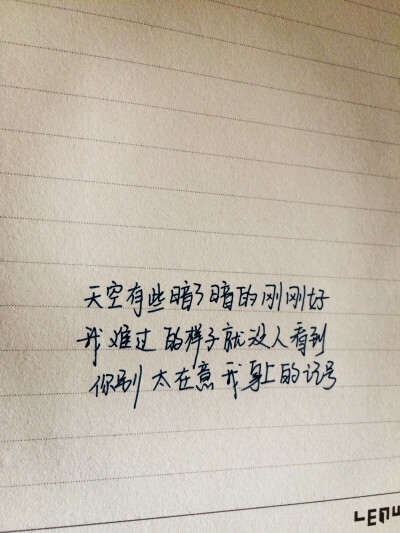 天空有些暗了暗的刚刚好
我难过的样子就没人看到
你别太在意我身上的记号